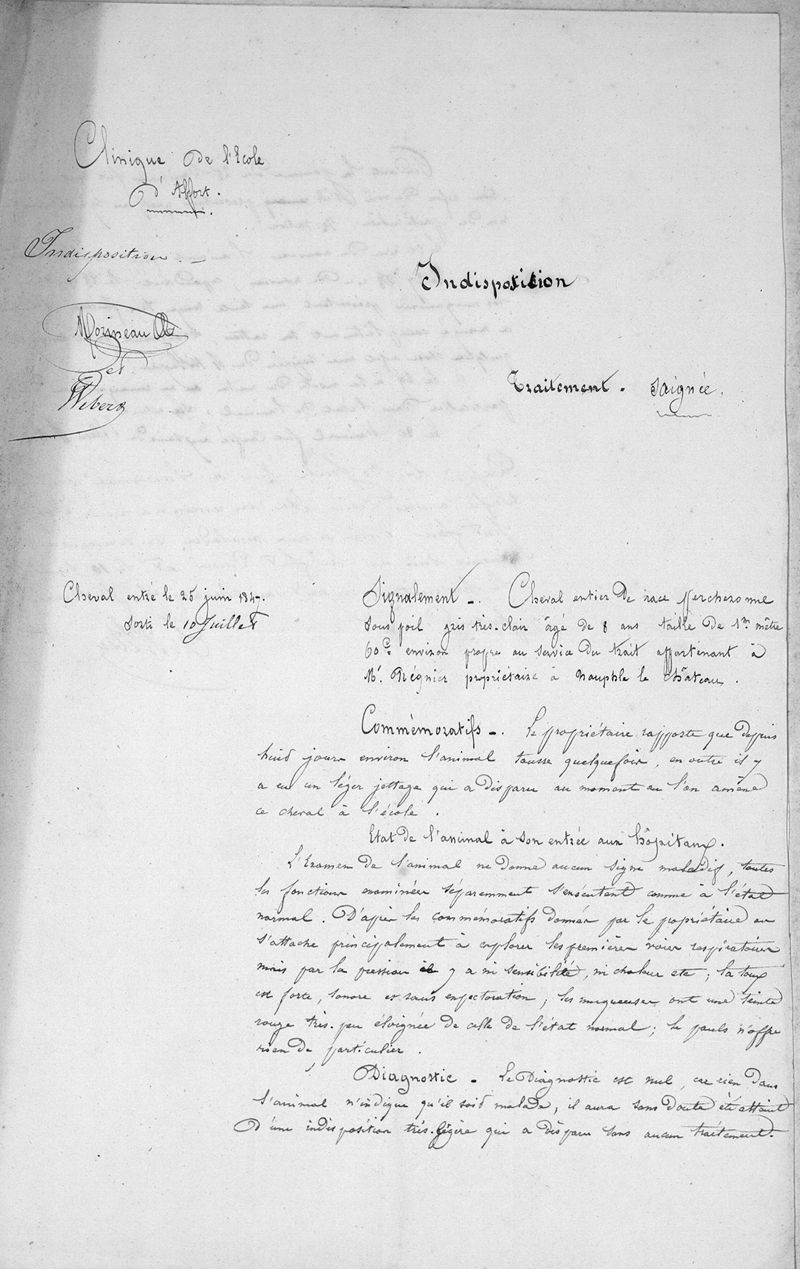 Clinique de l'Ecole
d'Alfort.
Indisposition. -
Indisposition
Morineau
et
Weber
Traitement. Saignée.
Cheval entré le 25 juin 184-.
Sorti le 10 Juillet
Signalement -. Cheval entier de race Percheronne
sous poil gris très-clair âgé de 8 ans taille de 1m mètre
60c environ propre au service du trait appartenant à
Mr Régnier propriétaire à Nauphle le Château.
Commémoratifs -. Le propriétaire rapporte que depuis
huid jours environ l'animal tousse quelquefois, en outre il y
a eu un léger jettage qui a disparu au moment ou l'on amène
ce cheval à l'école.
Etat de l'animal à son entrée aux hôpitaux.
L'Examen de l'animal ne donne aucun signe maladif, toutes
les fonctions examinées séparemment s'exécutent comme à l'état
normal. D'après les commemoratifs donner par le propriétaire on
s'attache principalement à explorer les premières voies respiratoires
mais par la pression il y a ni sensibilité, ni chaleur etc; la toux
est forte, sonore et sans expectoration; les muqueuses ont une teinte
rouge très-peu éloignée de celle de l'état normal; le pouls n'offre
rien de particulier.
Diagnostic - Le Diagnostic est nul, car rien dans
l'animal n'indique qu'il soid malade, il aura sans doute été atteint
d'une indisposition très-légère qui a disparu sans aucun traitement.